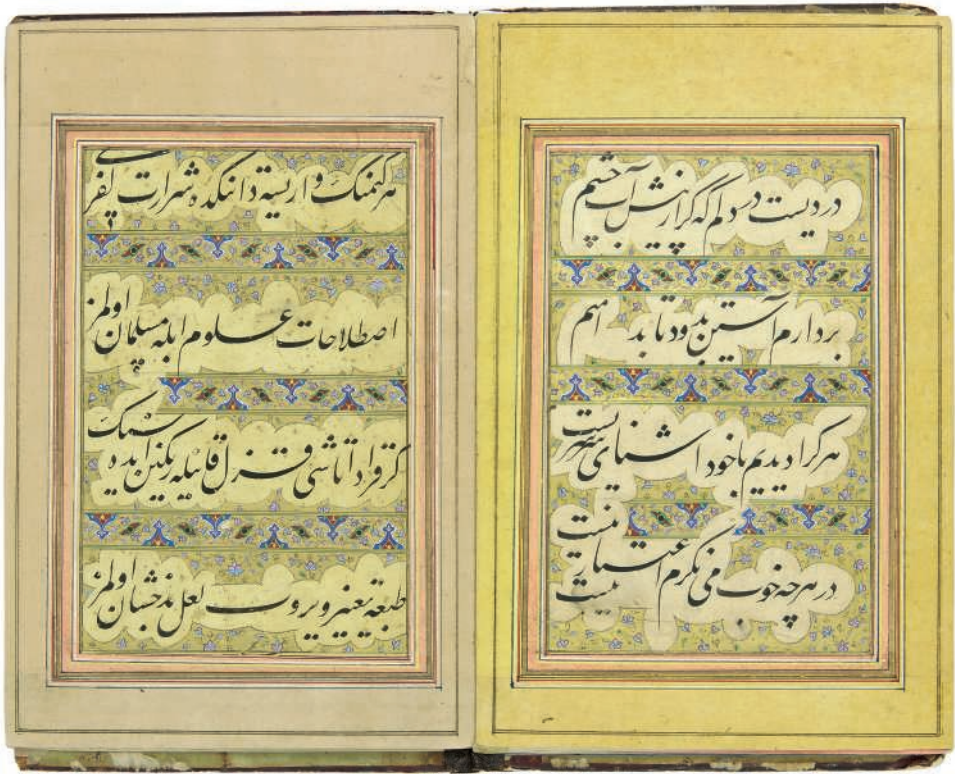 دردیست در دلم که گر از پیش آب چشم
بردارم آستین بدود تا بدامنم
هر کرا دیدیم با خود اشنای
در هر چه خوب می نگرم اعتبار نیست
هر کمنک وار ایسه ذاتنده شرارت کفری
اصطلاحات علوم ایله مسلمان اولمز
کر قرا طاشی قزل قانیله رنکین ایده سنک
طبعه تغییر ویروب لعل بدخشان اولمز